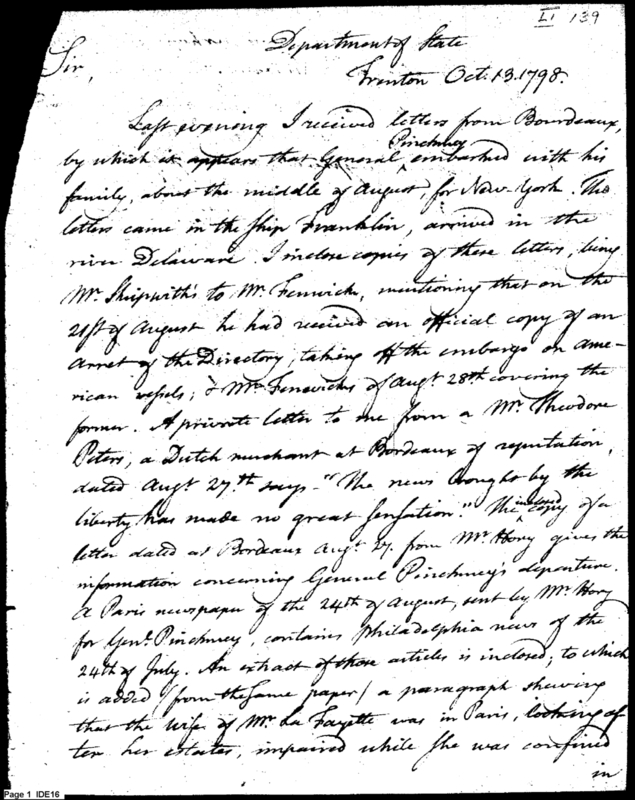 LI 139
Department of State
Trenton Oct. 13. 1798.
Sir,
Last evening I received letters from Bourdeaux,
by which it appears that General Pinckney embarked with his
family, about the middle of August, for New-York. The
letters came in the ship Franklin, arrived in the
river Delaware. I inclose copies of these letters, being
Mr. Skipwith's to Mr. Fenwick, mentioning that on the
21st of August he had received an official copy of an
Arret of the Directory, taking off the embargo on Ame-
rican vessels; & Mr. Fenwick's of Augt. 28th covering the
former. A private letter to me from a Mr. Theodore
Peters, a Dutch merchant at Bordeaux of reputation,
dated Augt. 27th. says - "The news brought by the
liberty has made no great sensation." The inclosed copy of a
letter dated at Bordeaux Augt. 27. from Mr. Hory gives the
information concerning General Pinckney's departure.
A Paris newspaper of the 24th of August, sent by Mr. Hory
for Genl. Pinckney, contains Philadelphia news of the
24th of July. An extract of those articles is inclosed; to which
is added (from the same paper) a paragraph shewing
that the wife of Mr. La Fayette was in Paris, looking af
ter her estates, impaired while she was confined
in
Page 1 IDE16